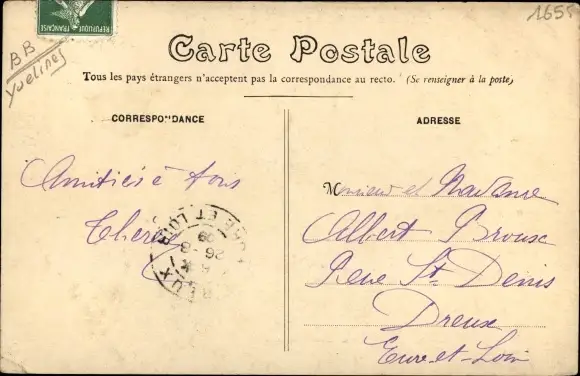 REPUBLIQUE FRANÇAISE
1655
BB
Yvelines
Carte Postale
Tous les pays étrangers n'acceptent pas la correspondance au recto. (Se renseigner à la poste)
CORRESPONDANCE
ADRESSE
Amitiés à tous
Monsieur et Madame
Albert Broux
Rue St Denis
Dreux
Eure-et-Loir
ET LOIR
26-8